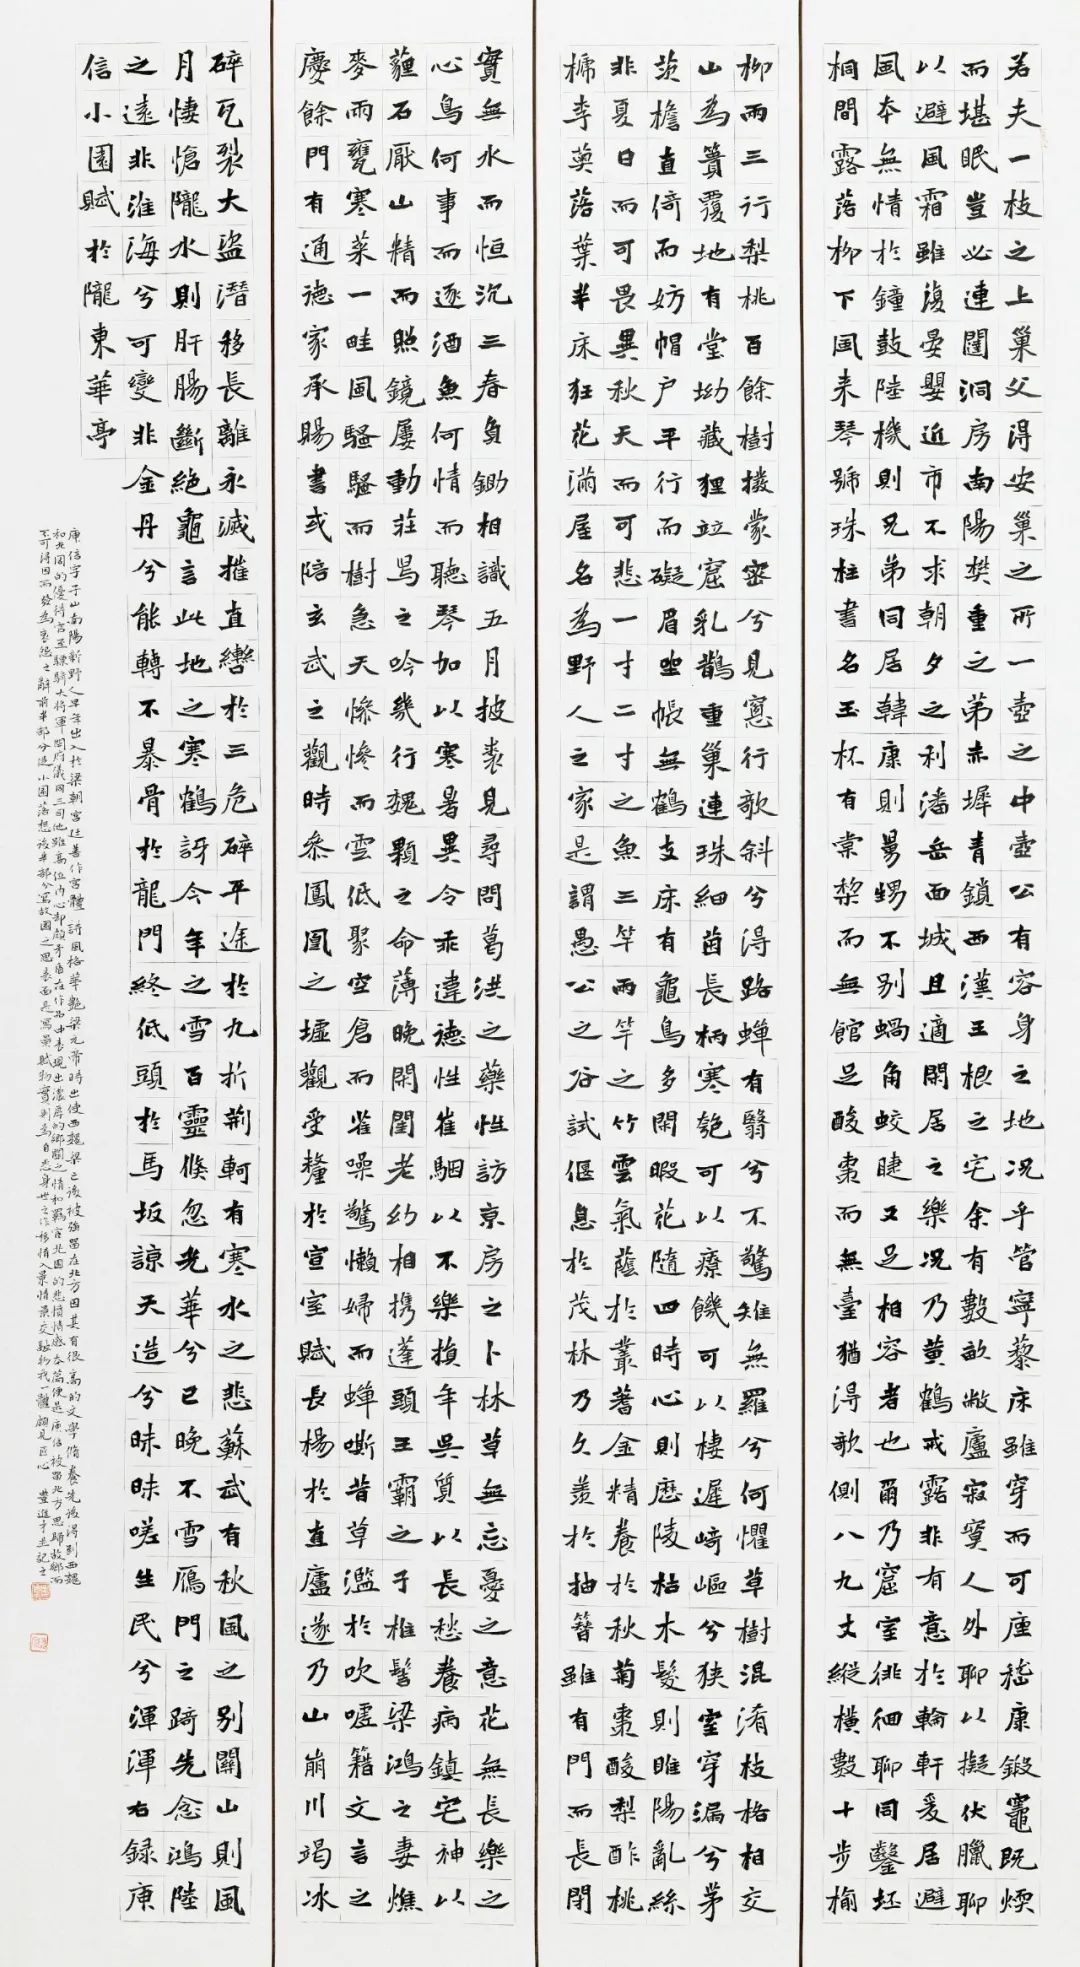 若夫一枝之上巢父得安巢之所一壺之中壺公有容身之地況乎管寧藜床雖穿而可座嵇康鍛竈既煗
而堪眠豈必連闥洞房南陽樊重之第赤墀青鎖西漢王根之宅余有數畝敝廬寂寞人外聊以擬伏臘聊
以避風霜雖復晏嬰近市不求朝夕之利潘岳面城且適閑居之樂況乃黃鶴戒露非有意於輪軒爰居避
風本無情於鐘鼓陸機則兄弟同居韓康則舅甥不別蝸角蚊睫又足相容者也爾乃窟室徘徊聊同鑿坯
桐間露落柳下風来琴號珠柱書名玉杯有棠梨而無館足酸棗而無臺猶得欹側八九丈縱橫數十步榆
柳兩三行梨桃百餘樹撥蒙密兮見窻行欹斜兮得路蟬有翳兮不驚雉無羅兮何懼草樹混淆枝格相交
山為簣覆地有堂坳藏狸並窟乳鵲重巢連珠細菌長柄寒匏可以療饑可以棲遲崎嶇兮狹室穿漏兮茅
茨檐直倚而妨帽户平行而礙眉坐帳無鶴支床有龜鳥多閑暇花隨四時心則歷陵枯木髮則睢陽亂絲
非夏日而可畏異秋天而可悲一寸二寸之魚三竿兩竿之竹雲氣蔭於叢蓍金精養於秋菊棗酸梨酢桃
榹李薁落葉半床狂花滿屋名為野人之家是謂愚公之谷試偃息於茂林乃久羨於抽簪雖有門而長閉
實無水而恒沉三春負鋤相識五月披裘見尋問葛洪之藥性訪京房之卜林草無忘憂之意花無長樂之
心鳥何事而逐酒魚何情而聽琴加以寒暑異令乖違德性崔駰以不樂損年吳質以長愁養病鎮宅神以
薶石厭山精而照鏡屢動莊舄之吟幾行魏顆之命薄晚閑閨老幼相携蓬頭王霸之子椎髻梁鴻之妻燋
麥兩甕寒菜一畦風騷騷而樹急天慘慘而雲低聚空倉而雀噪驚懶婦而蟬嘶昔草濫於吹噓籍文言之
慶餘門有通德家承賜書或陪玄武之觀時參鳳凰之墟觀受釐於宣室賦長楊於直廬遂乃山崩川竭冰
碎瓦裂大盜潛移長離永滅摧直轡於三危碎平途於九折荊軻有寒水之悲蘇武有秋風之別關山則風
月悽愴隴水則肝腸斷絕龜言此地之寒鶴訝今年之雪百靈倏忽光華兮已晚不雪雁門之踦先念鴻陸
之遠非淮海兮可變非金丹兮能轉不暴骨於龍門終低頭於馬坂諒天造兮昧昧嗟生民兮渾渾右録庾
信小園賦於隴東華亭
庾信字子山南陽新野人早年出入於梁朝宮廷善作宮體詩風格華艷梁元帝時出使西魏梁亡後被強留在北方因其有很高的文學脩養先後得到西魏
和北周的優待官至驃騎大將軍開府儀同三司他雖高位內心却頗矛盾在作品中表現出濃厚的鄉關之情和羈宦北國的悲憤情感本篇便是庾信被留北方思歸故鄉而
不可得因而發為哀怨之辭前半部分造小園落想後半部分寫故國之思表面是寫景賦物實則為自悲身世之作移情入景情景交融物我一體頗見匠心 豊進才並記之